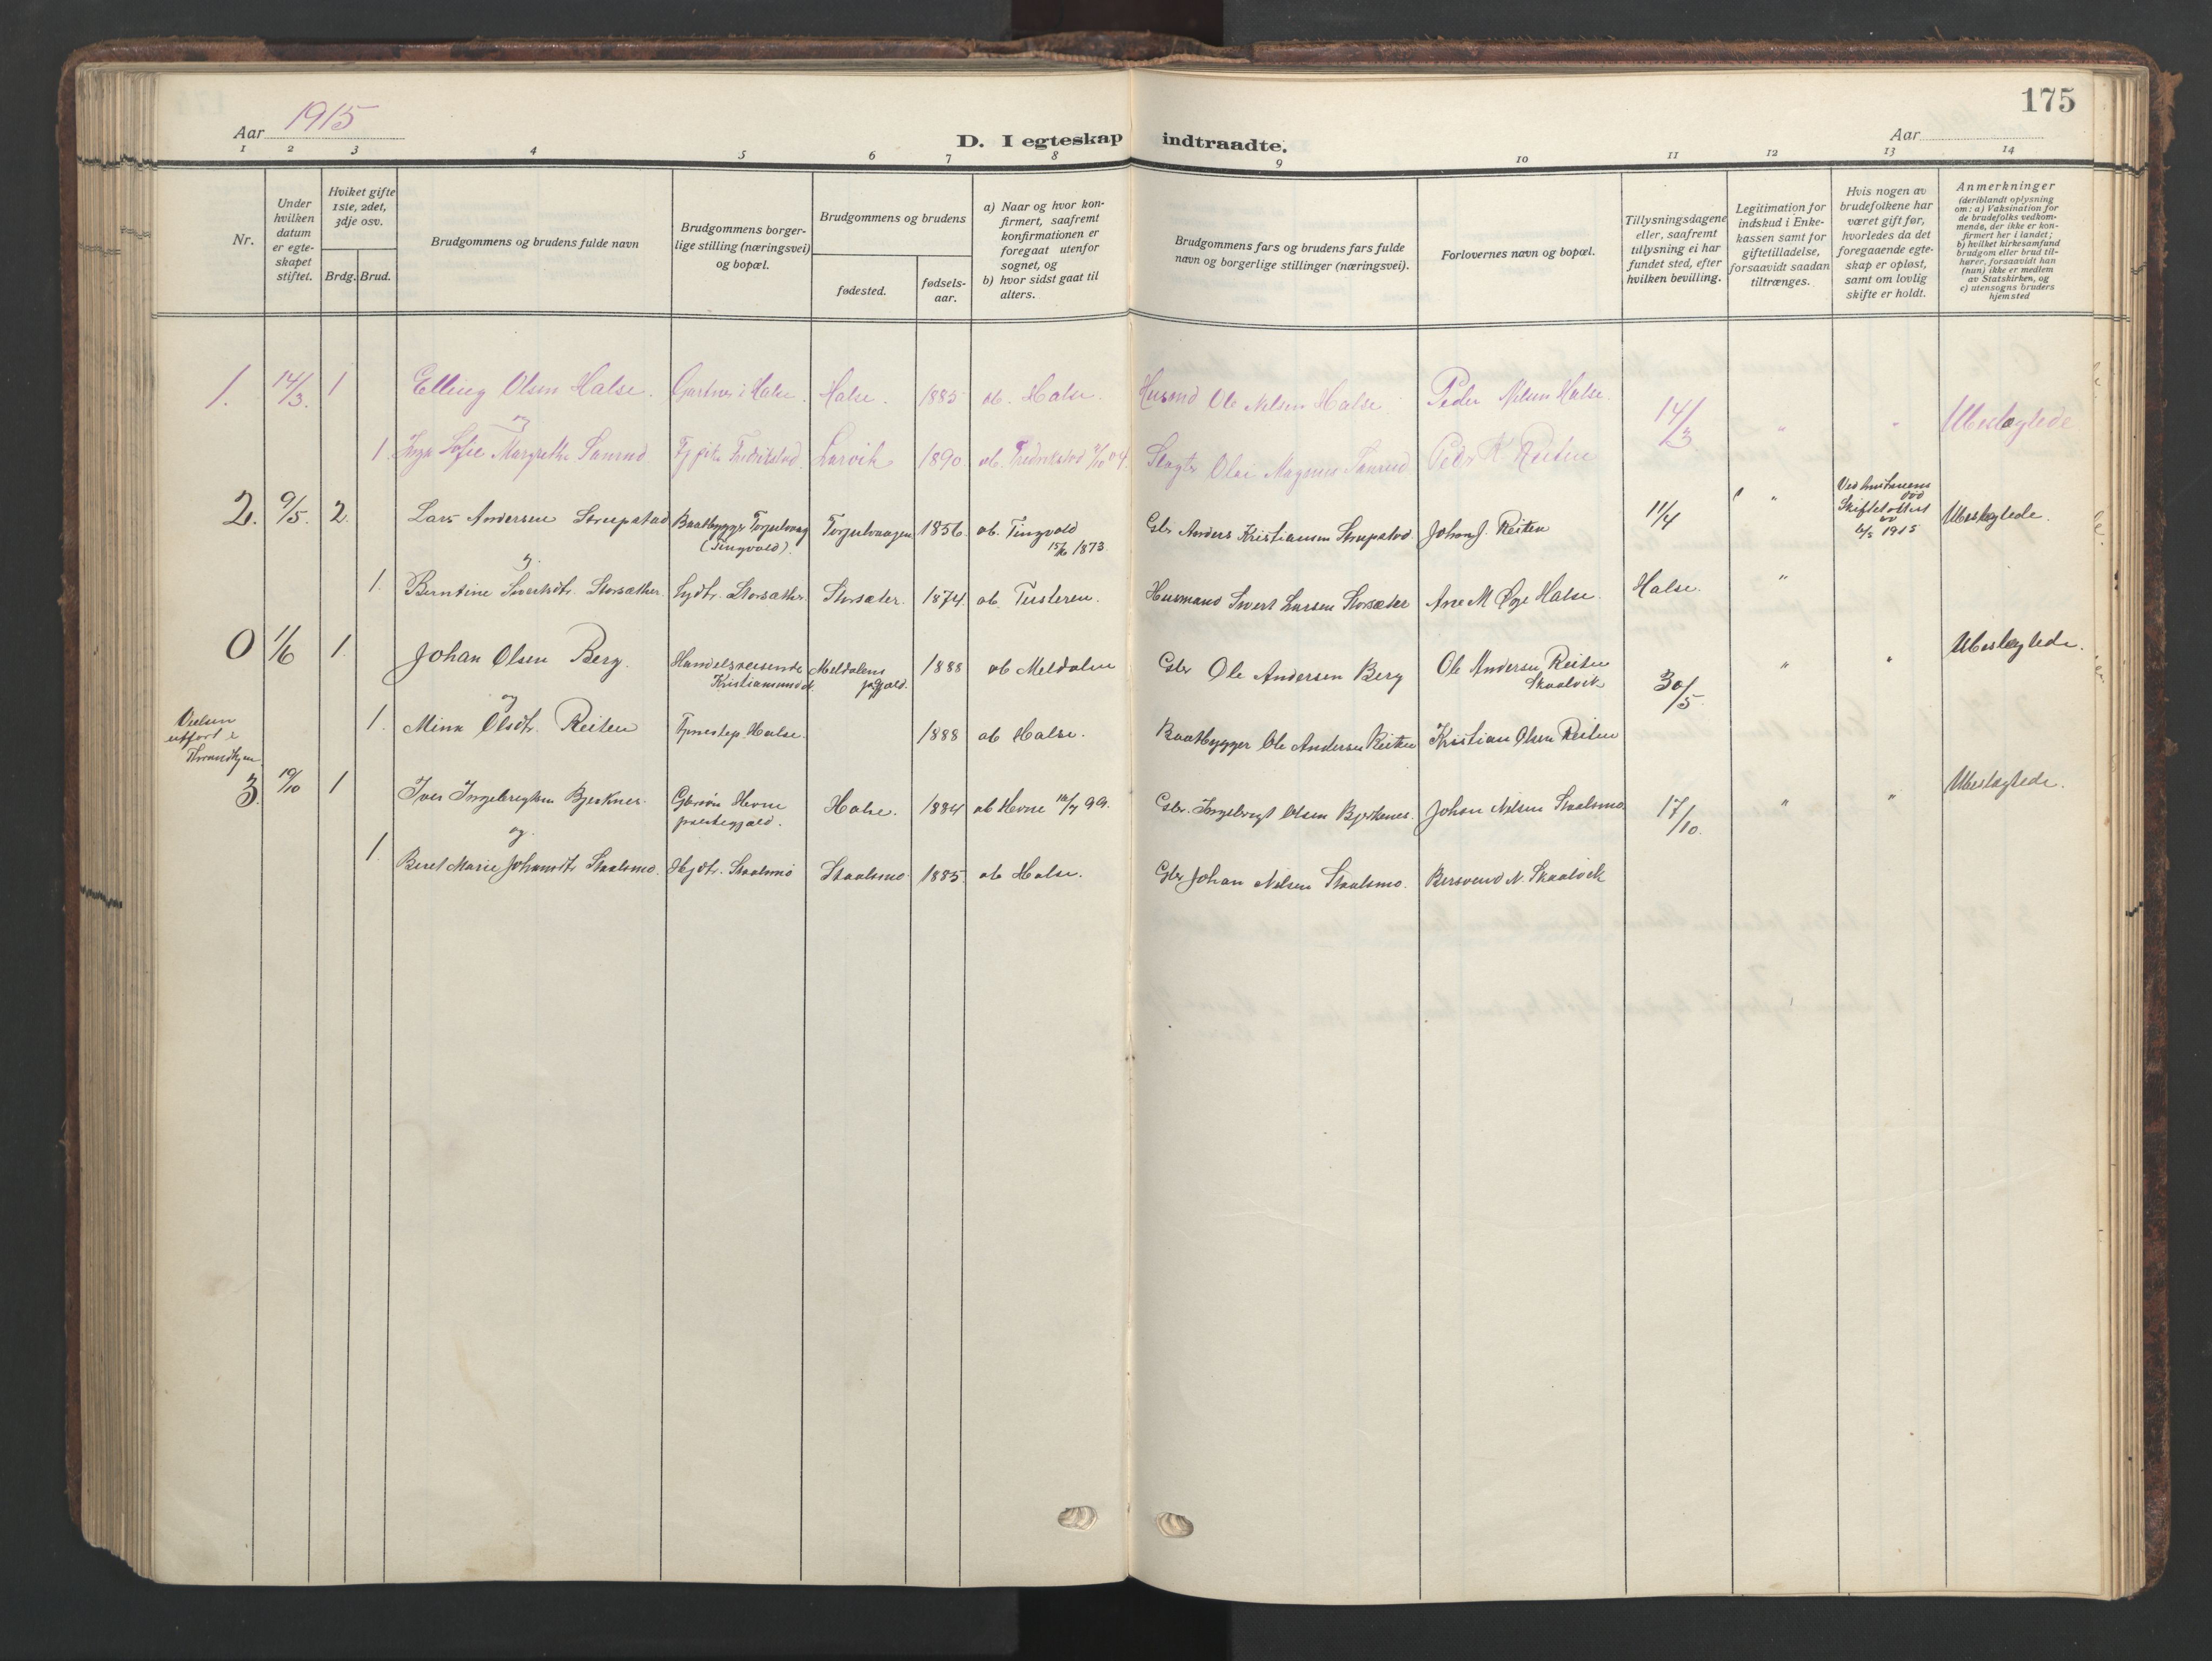 175
Aar 1915
D. I egteskap indtraadte.
Aar
1 2 3 4 5 6 7 8 9 10 11 12 13 14
Nr.
Under
hvilken
datum
er egte-
skapet
stiftet.
Hviket gifte
1ste, 2det,
3dje osv.
Brdg. Brud.
Brudgommens og brudens fulde navn
Brudgommens borger-
lige stilling (næringsvei)
og bopæl.
Brudgommens og brudens
fødested.
fødsels-
aar.
a) Naar og hvor kon-
firmert, saafremt
konfirmationen er
foregaat utenfor
sognet, og
b) hvor sidst gaat til
alters.
Brudgommens fars og brudens fars fulde
navn og borgerlige stillinger (næringsvei).
Forlovernes navn og bopæl.
Tillysningsdagene
eller, saafremt
tillysning ei har
fundet sted, efter
hvilken bevilling.
Legitimation for
indskud i Enke-
kassen samt for
giftetilladelse,
forsaavidt saadan
tiltrænges.
Hvis nogen av
brudefolkene har
været gift før,
hvorledes da det
foregaaende egte-
skap er opløst,
samt om lovlig
skifte er holdt.
Anmerkninger
(deriblandt oplysning
om: a) Vaksination for
de brudefolks vedkom-
mende, der ikke er kon-
firmert her i landet;
b) hvilket kirkesamfund
brudgom eller brud til-
hører, forsaavidt han
(hun) ikke er medlem
av Statskirken, og
c) utensogns bruders
hjemsted
1. 14/3. 1 Elling Olsen Halse. Gartner i Halse. Halse. 1885 ab. Halse. Husmd Ole Nelsen Halse. Peder Nelsen Halse. 14/3 " " Ubeslegtede
og
1. Inga Sofie Margrethe Fredrikstad Larvik 1890 ab. Fredrikstad Slagter Olai Magnus Peder K Reiten
2. 9/5. 2. Lars Andersen Strupstad Baatbygger Torjulvaag Torjulvaagen 1856. ab. Tingvold Gbr Anders Kristiansen Strupstad. Johan J. Reiten 11/4 " Ved hustruens død Ubeslegtede.
(Tingvold). 15/6 1873. Skifteattest av
6/5 1915
og
1. Berntine Sivertsdtr. Storsæther. Storsæther Storsæter. 1874. ab. Tusteren. Husmand Sivert Larsen Storsæter Ane M Øye Halse. Halse. "
0 1/6 1. Johan Olsen Berg. Handelsreisende Meldalens 1888 ab Meldalen Gbr Ole Andersen Berg Ole Andersen Reiten 30/5 " " Ubeslegtede.
Kristiansund N. pgjæld. Skaalvik
og
Vielsen
utført i
Trondhjem
1. Mina Olsdtr. Reiten Halse. 1888 ab Halse. Baatbygger Ole Andersen Reiten Kristian Olsen Reiten
3. 19/10 1 Iver Ingebrigtsen Bjerknes. Gbrsøn Hevne Halse. 1884 ab Hevne 99. Gbr. Ingebrigt Olsen Bjerkenes. Johan Nelsen Staalsmo 17/10. " " Ubeslegtede.
prestegjæld.
og.
1. Beret Marie Johansdtr Staalsmo. Staalsmo Staalsmo. 1885. ab Halse. Gbr Johan Nelsen Staalsmo. Bersvend N. Skaalvik